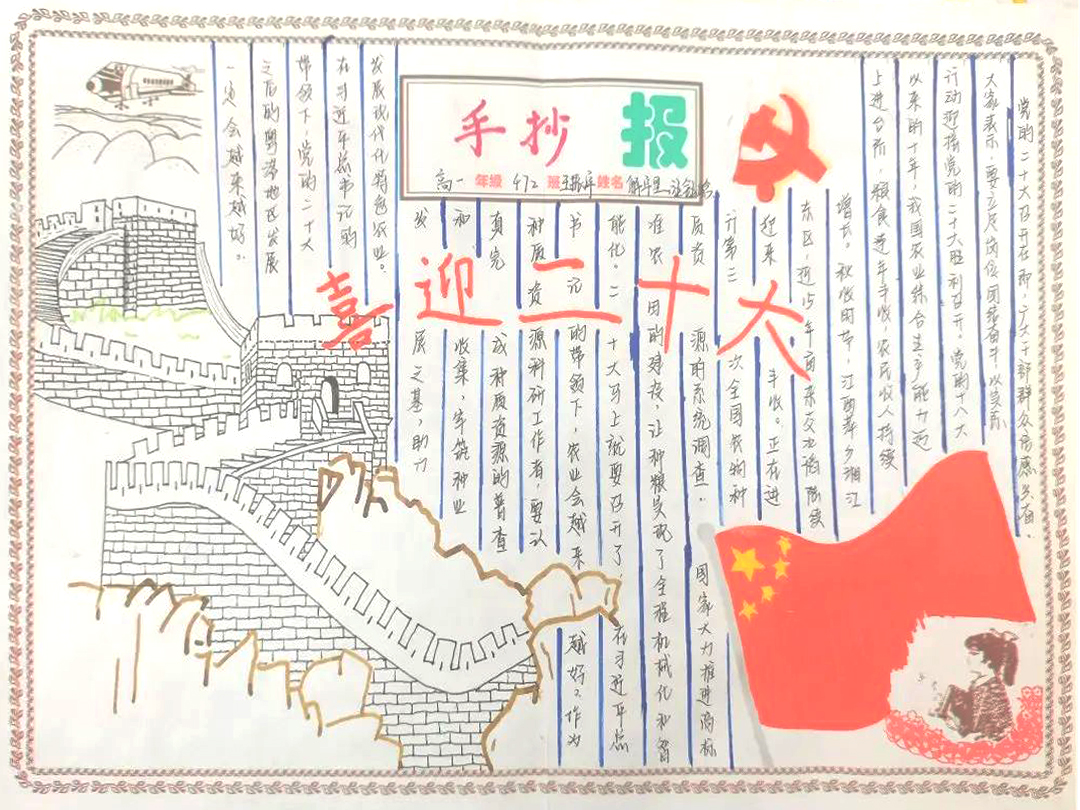 手抄报
高一年级472班 姓名
喜迎二十大
党的二十大召开在即,广大干部群众倍感关注。
大家表示,要立足岗位团结奋斗,以实际
行动迎接党的二十大胜利召开。党的十八大
以来的十年,我国农业综合生产能力迈
上进台阶,粮食连年丰收,农民收入持续
增长。秋收时节,江西萍乡湘江
东区,近15年亩来交出稻陆续
迎来丰收。正在进
行第三次全国农的种
质资源的系统调查。国家大力推进高标
准农田的建设,让种粮实现了全程机械化和智
能化。二十大马上就要召开了,在习近平总
书记的带领下,农业会越来越好。作为
种质资源科研工作者,要认
真完成种质资源的普查
和收集,牢筑种业
发展之基,助力
发展现代化特色农业。
在习近平总书记的
带领下,党的二十大
之后的粤港地区发展
一定会越来越好。